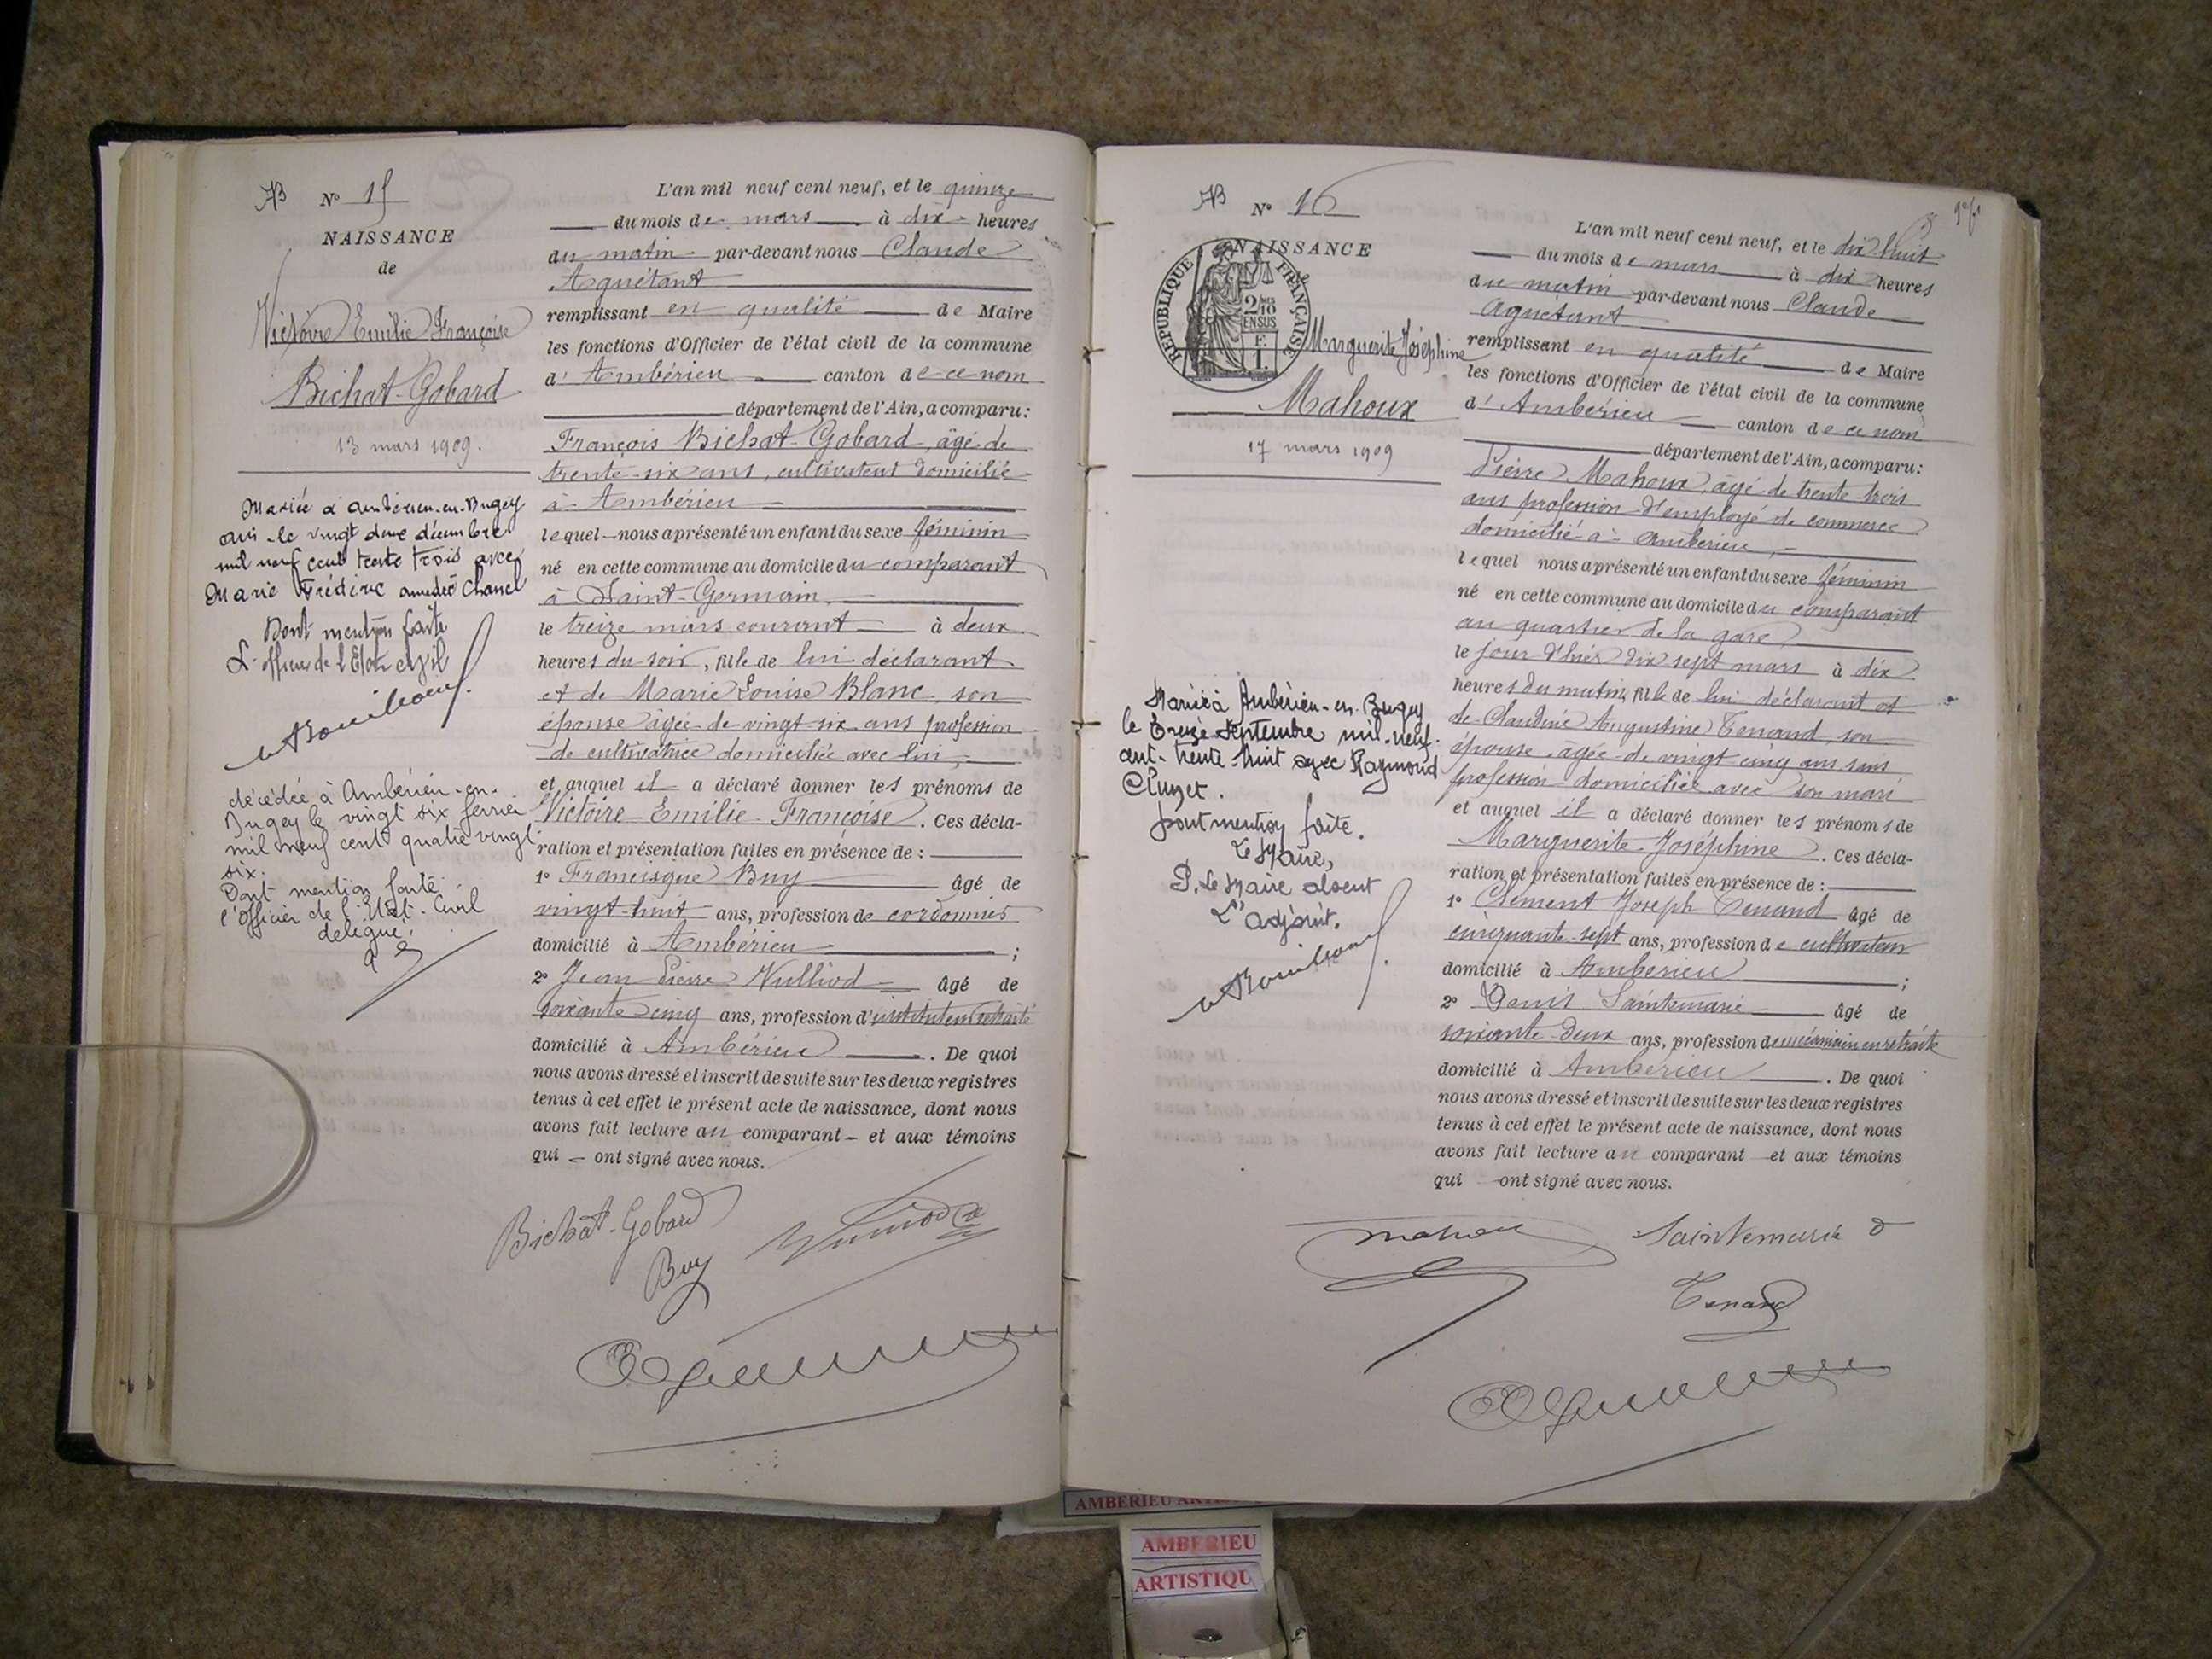 AB N° 15
NAISSANCE
de
Victoire Emilie Françoise
Bichat-Gobard
13 mars 1909.
Mariée à Ambérieu-en-Bugey
le vingt deux décembre
mil neuf cent trente trois avec
Marie Frédéric amedée Chanel
Dont mention faite
L'officier de l'Etat civil
décédée à Ambérieu-en-
Bugey le vingt six février
mil neuf cent quatre vingt
six.
Dont mention faite
l'Officier de l'Etat-Civil
délégué.
L'an mil neuf cent neuf, et le quinze
du mois de mars à dix heures
du matin par-devant nous Claude
Aguétant
remplissant en qualité de Maire
les fonctions d'Officier de l'état civil de la commune
d'Ambérieu canton de ce nom
département de l'Ain, a comparu:
François Bichat-Gobard, âgé de
trente-six ans, cultivateur domicilié
à Ambérieu
lequel nous a présenté un enfant du sexe féminin
né en cette commune au domicile du comparant
à Saint-Germain,
le treize mars courant à deux
heures du soir, fille de lui déclarant
et de Marie Louise Blanc, son
épouse âgée de vingt-six ans profession
de cultivatrice domiciliée avec lui,
et auquel il a déclaré donner les prénoms de
Victoire Emilie Françoise. Ces décla-
ration et présentation faites en présence de :
1° Francisque Buy âgé de
vingt-huit ans, profession de cordonnier
domicilié à Ambérieu ;
2° Jean Pierre Nulliod âgé de
soixante cinq ans, profession d'instituteur retraité
domicilié à Ambérieu. De quoi
nous avons dressé et inscrit de suite sur les deux registres
tenus à cet effet le présent acte de naissance, dont nous
avons fait lecture au comparant et aux témoins
qui ont signé avec nous.
Bichat-Gobard
Buy
AB N° 16
NAISSANCE
RÉPUBLIQUE FRANÇAISE
2/10
EN SUS
F.
1.
Marguerite Joséphine
Mahoux
17 mars 1909
Mariée à Ambérieu-en-Bugey
le treize septembre mil-neuf-
cent-trente-huit avec Raymond
Cluzet.
Dont mention faite.
Le Maire,
P. Le Maire absent
L'adjoint.
L'an mil neuf cent neuf, et le dix huit
du mois de mars à dix heures
du matin par-devant nous Claude
Aguétant
remplissant en qualité de Maire
les fonctions d'Officier de l'état civil de la commune
d'Ambérieu canton de ce nom
département de l'Ain, a comparu:
Pierre Mahoux, âgé de trente-trois
ans profession d'employé de commerce
domicilié à Ambérieu,
lequel nous a présenté un enfant du sexe féminin
né en cette commune au domicile du comparant
au quartier de la gare,
le jour d'hier dix sept mars à dix
heures du matin, fille de lui déclarant et
de Claudine Augustine Tenand, son
épouse, âgée de vingt cinq ans sans
profession domiciliée avec son mari
et auquel il a déclaré donner les prénoms de
Marguerite-Joséphine. Ces décla-
ration et présentation faites en présence de :
1° Clément Joseph Tenand âgé de
cinquante-sept ans, profession de cultivateur
domicilié à Ambérieu ;
2° Denis Saintemarie âgé de
soixante-deux ans, profession de mécanicien en retraite
domicilié à Ambérieu. De quoi
nous avons dressé et inscrit de suite sur les deux registres
tenus à cet effet le présent acte de naissance, dont nous
avons fait lecture au comparant et aux témoins
qui ont signé avec nous.
Mahoux
Saintemarie D
Tenand
AMBERIEU
AMBERIEU
ARTISTIQU